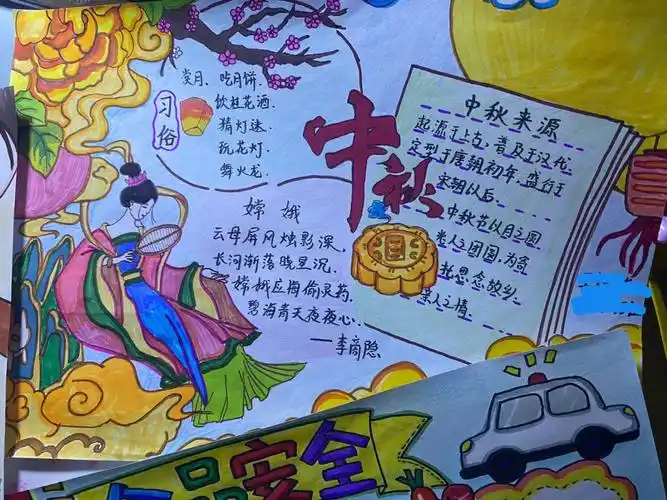 赏月、吃月饼.
饮桂花酒.
猜灯迷.
玩花灯.
舞火龙.
习俗
中秋
嫦娥
云母屏风烛影深,
长河渐落晓星沉.
嫦娥应悔偷灵药,
碧海青天夜夜心.
—李商隐
中秋来源
起源于上古,普及于汉代,
定型于唐朝初年,盛行于
宋朝以后
中秋节以月之圆
兆人之团圆,为寄
托思念故乡,
亲人之情
品安全